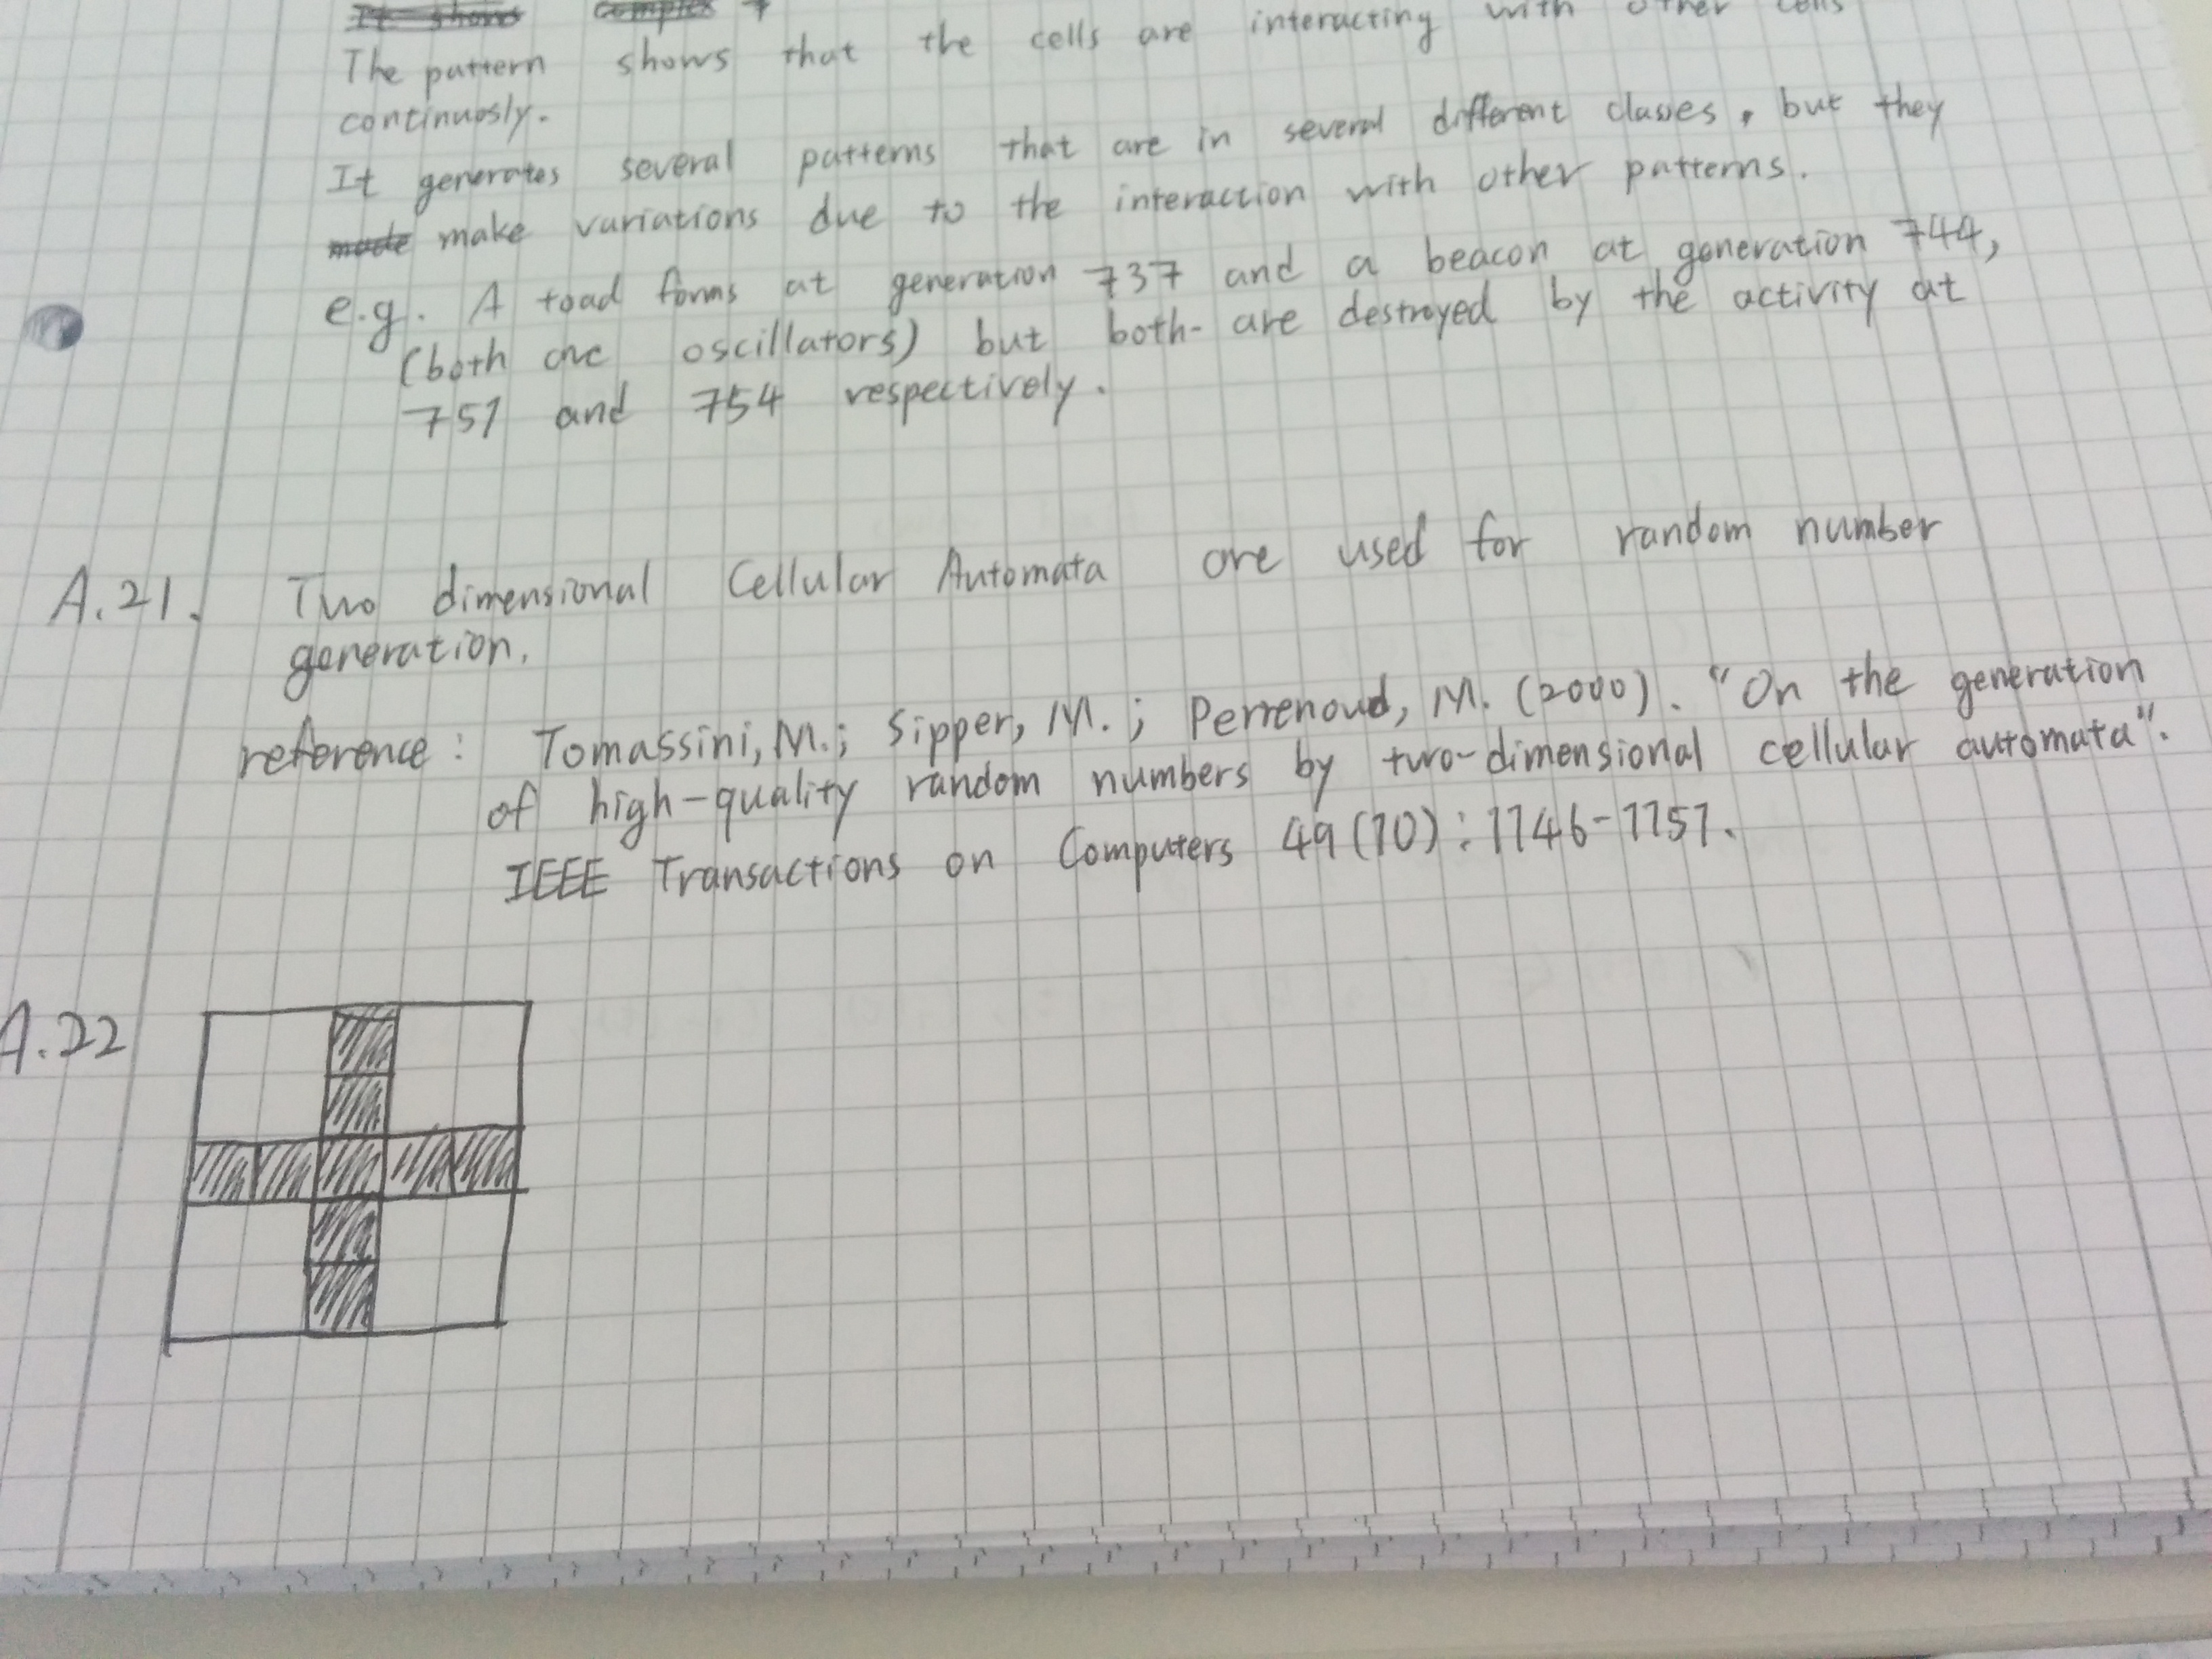 It shows complex
The pattern shows that the cells are interacting with other cells
continuosly.
It generates several patterns that are in several different classes, but they
made make variations due to the interaction with other patterns.
e.g. A toad forms at generation 737 and a beacon at generation 744,
(both are oscillators) but both are destroyed by the activity at
751 and 754 respectively.
A.21. Two dimensional Cellular Automata are used for random number
generation.
reference: Tomassini, M.; Sipper, M.; Perrenoud, M. (2000). "On the generation
of high-quality random numbers by two-dimensional cellular automata".
IEEE Transactions on Computers 49(10): 1146-1151.
A.22